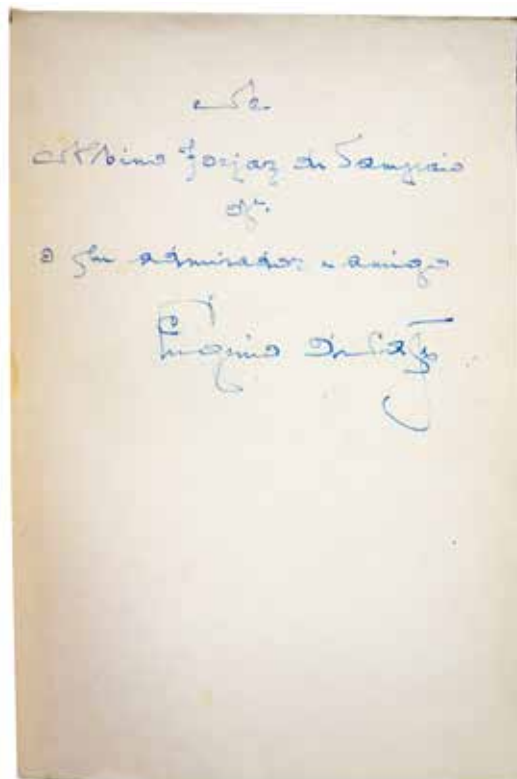 A
Albino Forjaz de Sampaio
of.
o seu admirador e amigo
Eugénio de Castro